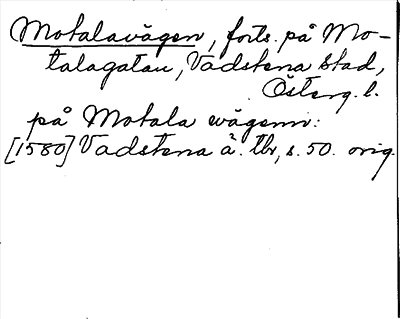 Motalavägen, forts. på Mo-
talagatan, Vadstena stad,
Österg. l.
på Motala wägenn:
[1580] Vadstena ä. tbr, s. 50. orig.